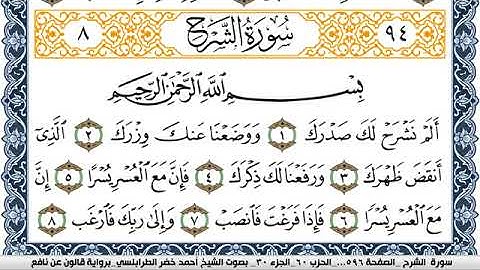 ٩٤ سُورَةُ الشَّرْحِ ٨
بِسْمِ اللَّهِ الرَّحْمَٰنِ الرَّحِيمِ
أَلَمْ نَشْرَحْ لَكَ صَدْرَكَ ١ وَوَضَعْنَا عَنكَ وِزْرَكَ ٢ الَّذِي
أَنقَضَ ظَهْرَكَ ٣ وَرَفَعْنَا لَكَ ذِكْرَكَ ٤ فَإِنَّ مَعَ الْعُسْرِ يُسْرًا ٥ إِنَّ
مَعَ الْعُسْرِ يُسْرًا ٦ فَإِذَا فَرَغْتَ فَانصَبْ ٧ وَإِلَىٰ رَبِّكَ فَارْغَب ٨
سورة الشرح _الصفحة ٥٩٦... الحزب ٦٠_الجزء ٣٠_ بصوت الشيخ أحمد خضر الطرابلسي_برواية قالون عن نافع